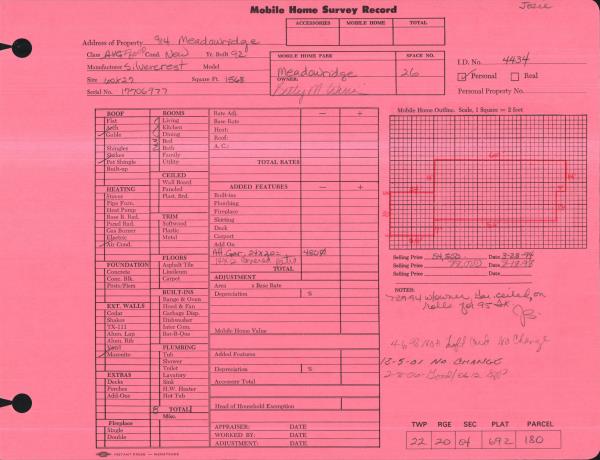 Mobile Home Survey Record
Josie
ACCESSORIES MOBILE HOME TOTAL
Address of Property 914 Meadowridge
Class AVG Cond. New Yr. Built 92
Manufacturer Silvercrest Model
Size 60x27 Square Ft. 1568
Serial No. 17706977
MOBILE HOME PARK SPACE NO.
Meadowridge 26
OWNER:
Betty M.
I.D. No. 4434
Personal Real
Personal Property No.
ROOF
Flat
Arch
Gable
Shingles
Shakes
Pat Shingle
Built-up
HEATING
Stoves
Pipe Furn.
Heat Pump
Base B. Rad.
Panel Rad.
Gas Burner
Electric
Air Cond.
FOUNDATION
Concrete
Conc. Blk.
Posts/Piers
EXT. WALLS
Cedar
Shakes
TX-111
Alum. Lap
Alum. Rib
Vinyl
Masonite
EXTRAS
Decks
Porches
Add-Ons
Fireplace
Single
Double
ROOMS
Living
Kitchen
Dining
Bed
Bath
Family
Utility
CEILED
Wall Board
Paneled
Plast. Brd.
TRIM
Softwood
Plastic
Metal
FLOORS
Asphalt Tile
Linoleum
Carpet
BUILT-INS
Range & Oven
Hood & Fan
Garbage Disp.
Dishwasher
Inter Com.
Bar-B-Que
PLUMBING
Tub
Shower
Toilet
Lavatory
Sink
H.W. Heater
Hot Tub
8 TOTAL
Misc.
Rate Adj. − +
Base Rate
Heat:
Roof:
A. C.:
TOTAL RATES
ADDED FEATURES − +
Built-ins
Plumbing
Fireplace
Skirting
Deck
Carport
Add On
Att Gar. 24x20= 480
14x12 Covered Patio
TOTAL
ADJUSTMENT
Area x Base Rate
Depreciation %
Mobile Home Value
Added Features
Depreciation %
Accessory Total
Head of Household Exemption
APPRAISER: DATE
WORKED BY: DATE
ADJUSTMENT: DATE
Mobile Home Outline. Scale, 1 Square = 2 feet
Selling Price 54,500 Date 3-23-94
Selling Price Date
Selling Price Date
NOTES:
No Change
10-5-01 NO CHANGE
TWP RGE SEC PLAT PARCEL
22 20 04 692 180